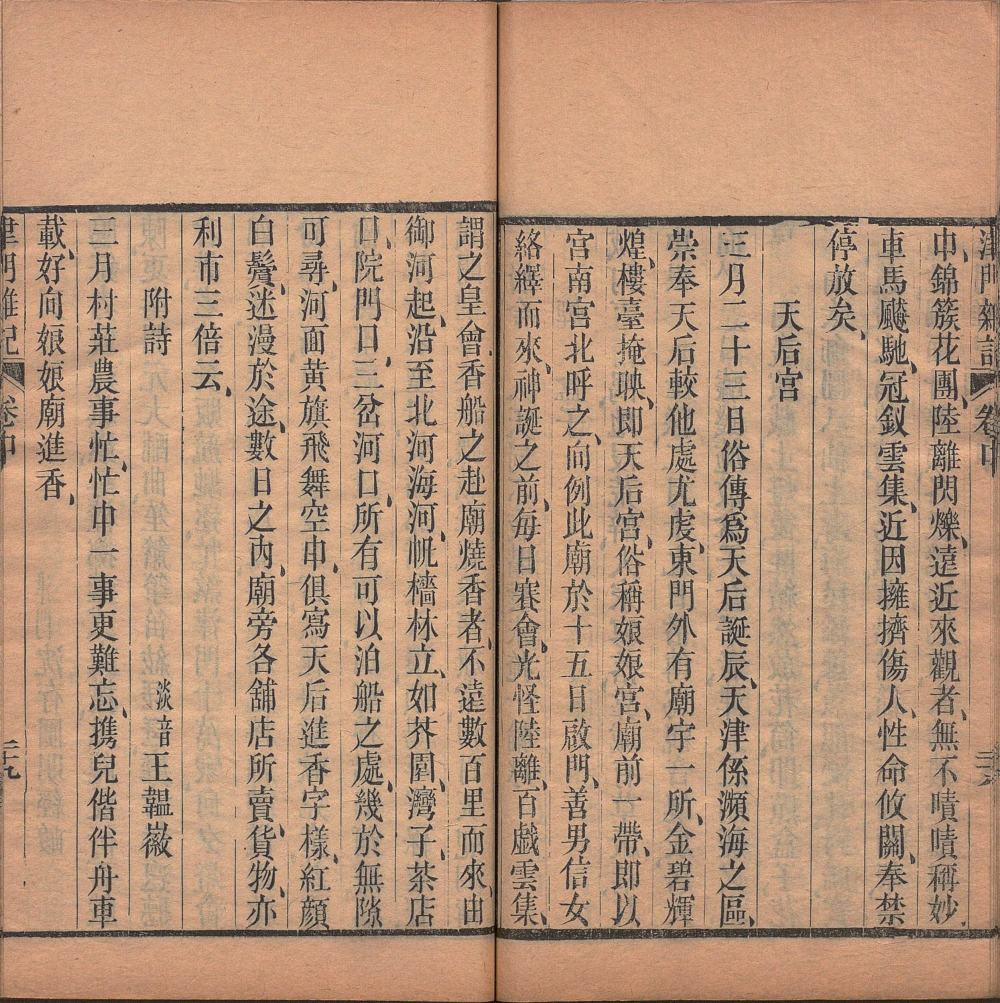 津門雜記 卷中
中、錦簇花團、陸離閃爍、遠近來觀者、無不嘖嘖稱妙、
車馬飈馳、冠釵雲集、近因擁擠傷人、性命攸關、奉禁
停放矣、
天后宮
三月二十三日俗傳爲天后誕辰、天津係瀕海之區、
崇奉天后較他處尤虔、東門外有廟宇一所、金碧輝
煌、樓臺掩映、即天后宮、俗稱娘娘宮、廟前一帶、即以
宮南宮北呼之、向例此廟於十五日啟門、善男信女
絡繹而來、神誕之前、每日賽會、光怪陸離、百戲雲集、
謂之皇會、香船之赴廟燒香者、不遠數百里而來、由
御河起、沿至北河海河、帆檣林立、如芥園、灣子、茶店
口、院門口、三岔河口、所有可以泊船之處、幾於無隙
可尋、河面黃旗飛舞空中、俱寫天后進香字樣、紅顏
白鬢、迷漫於途、數日之內、廟旁各舖店所賣貨物、亦
利市三倍云、
附詩 淡音王韞徽
三月村莊農事忙、忙中一事更難忘、携兒偕伴舟車
載、好向娘娘廟進香、
津門雜記 卷中 二十九